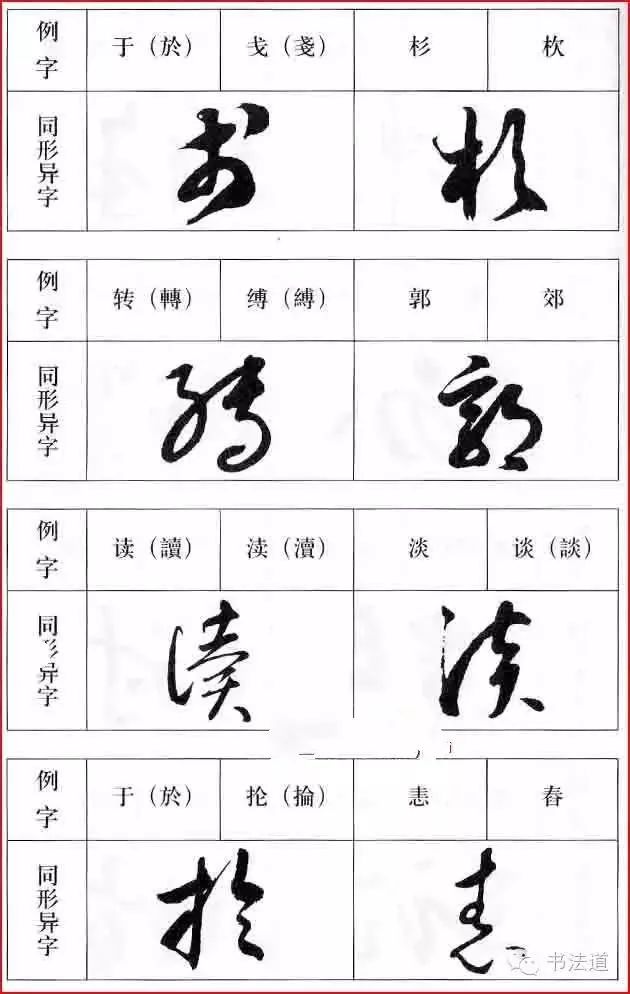 例字 于（於） 戋（戔） 杉 杴
同形异字
例字 转（轉） 缚（縛） 郭 郊
同形异字
例字 读（讀） 渎（瀆） 淡 谈（談）
同形异字
例字 于（於） 抡（掄） 恚 春
同形异字
书法道